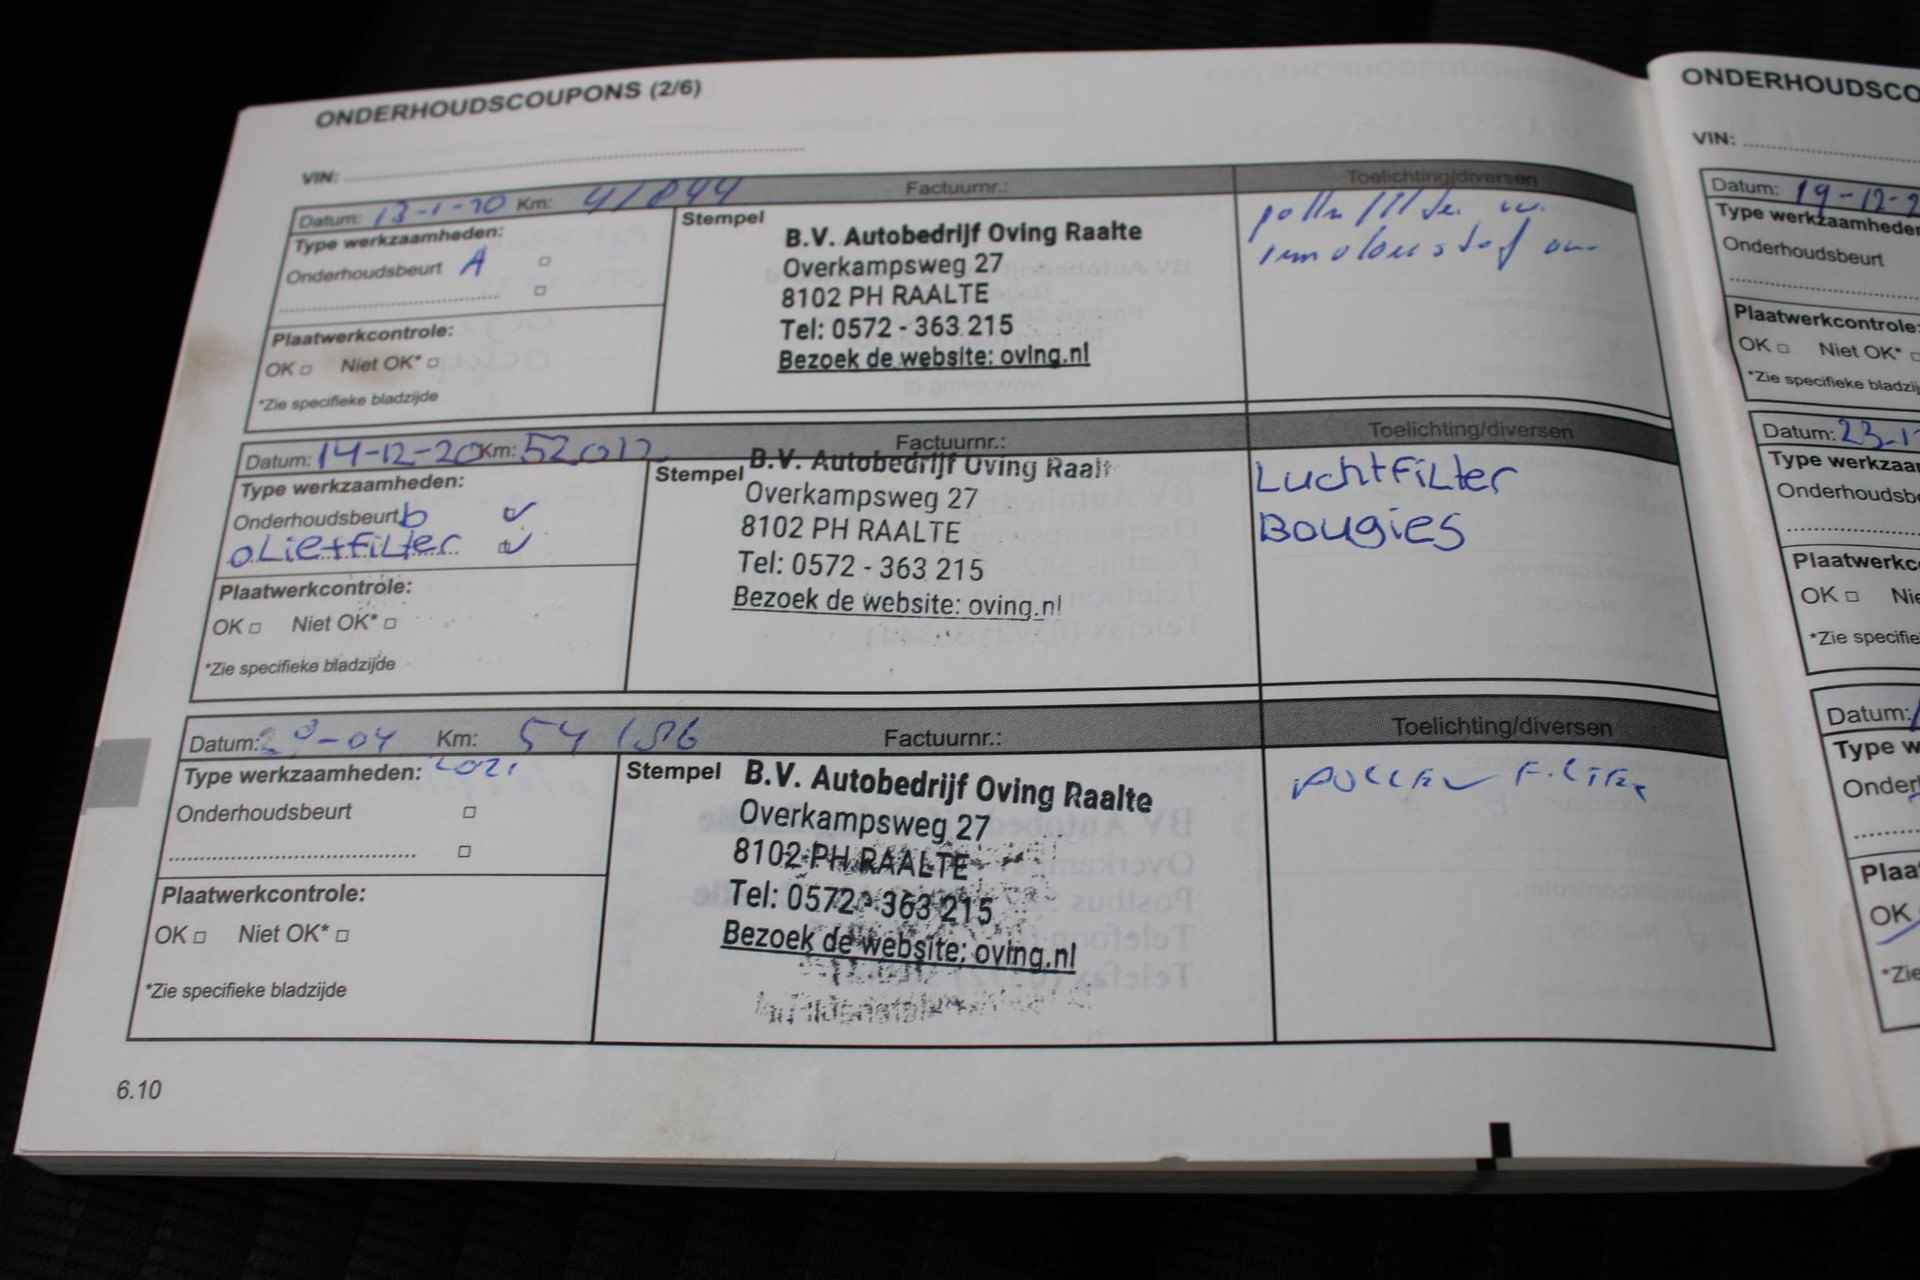 ONDERHOUDSCOUPONS (2/6)
VIN:
Datum: 13-1-20 Km: 41844 Factuurnr.: Toelichting/diversen
Type werkzaamheden:
Onderhoudsbeurt A
Plaatwerkcontrole:
OK Niet OK*
*Zie specifieke bladzijde
Stempel
B.V. Autobedrijf Oving Raalte
Overkampsweg 27
8102 PH RAALTE
Tel: 0572 - 363 215
Bezoek de website: oving.nl
Datum: 14-12-20 Km: 52012 Factuurnr.: Toelichting/diversen
Type werkzaamheden:
Onderhoudsbeurt b
oLie+fiLter
Plaatwerkcontrole:
OK Niet OK*
*Zie specifieke bladzijde
Stempel
B.V. Autobedrijf Oving Raalt
Overkampsweg 27
8102 PH RAALTE
Tel: 0572 - 363 215
Bezoek de website: oving.nl
LuchtfiLter
Bougies
Datum: 29-04 Km: 54186 Factuurnr.: Toelichting/diversen
Type werkzaamheden: 2021
Onderhoudsbeurt
Plaatwerkcontrole:
OK Niet OK*
*Zie specifieke bladzijde
Stempel
B.V. Autobedrijf Oving Raalte
Overkampsweg 27
8102 PH RAALTE
Tel: 0572 - 363 215
Bezoek de website: oving.nl
POLLEN FILTER
6.10
ONDERHOUDSCO
VIN:
Datum: 19-12-2
Type werkzaamheden
Onderhoudsbeurt
Plaatwerkcontrole:
OK Niet OK*
*Zie specifieke bladzij
Datum: 23-1
Type werkzaa
Onderhoudsb
Plaatwerkc
OK Nie
*Zie specifie
Datum:
Type w
Onder
Plaa
OK
*Zie